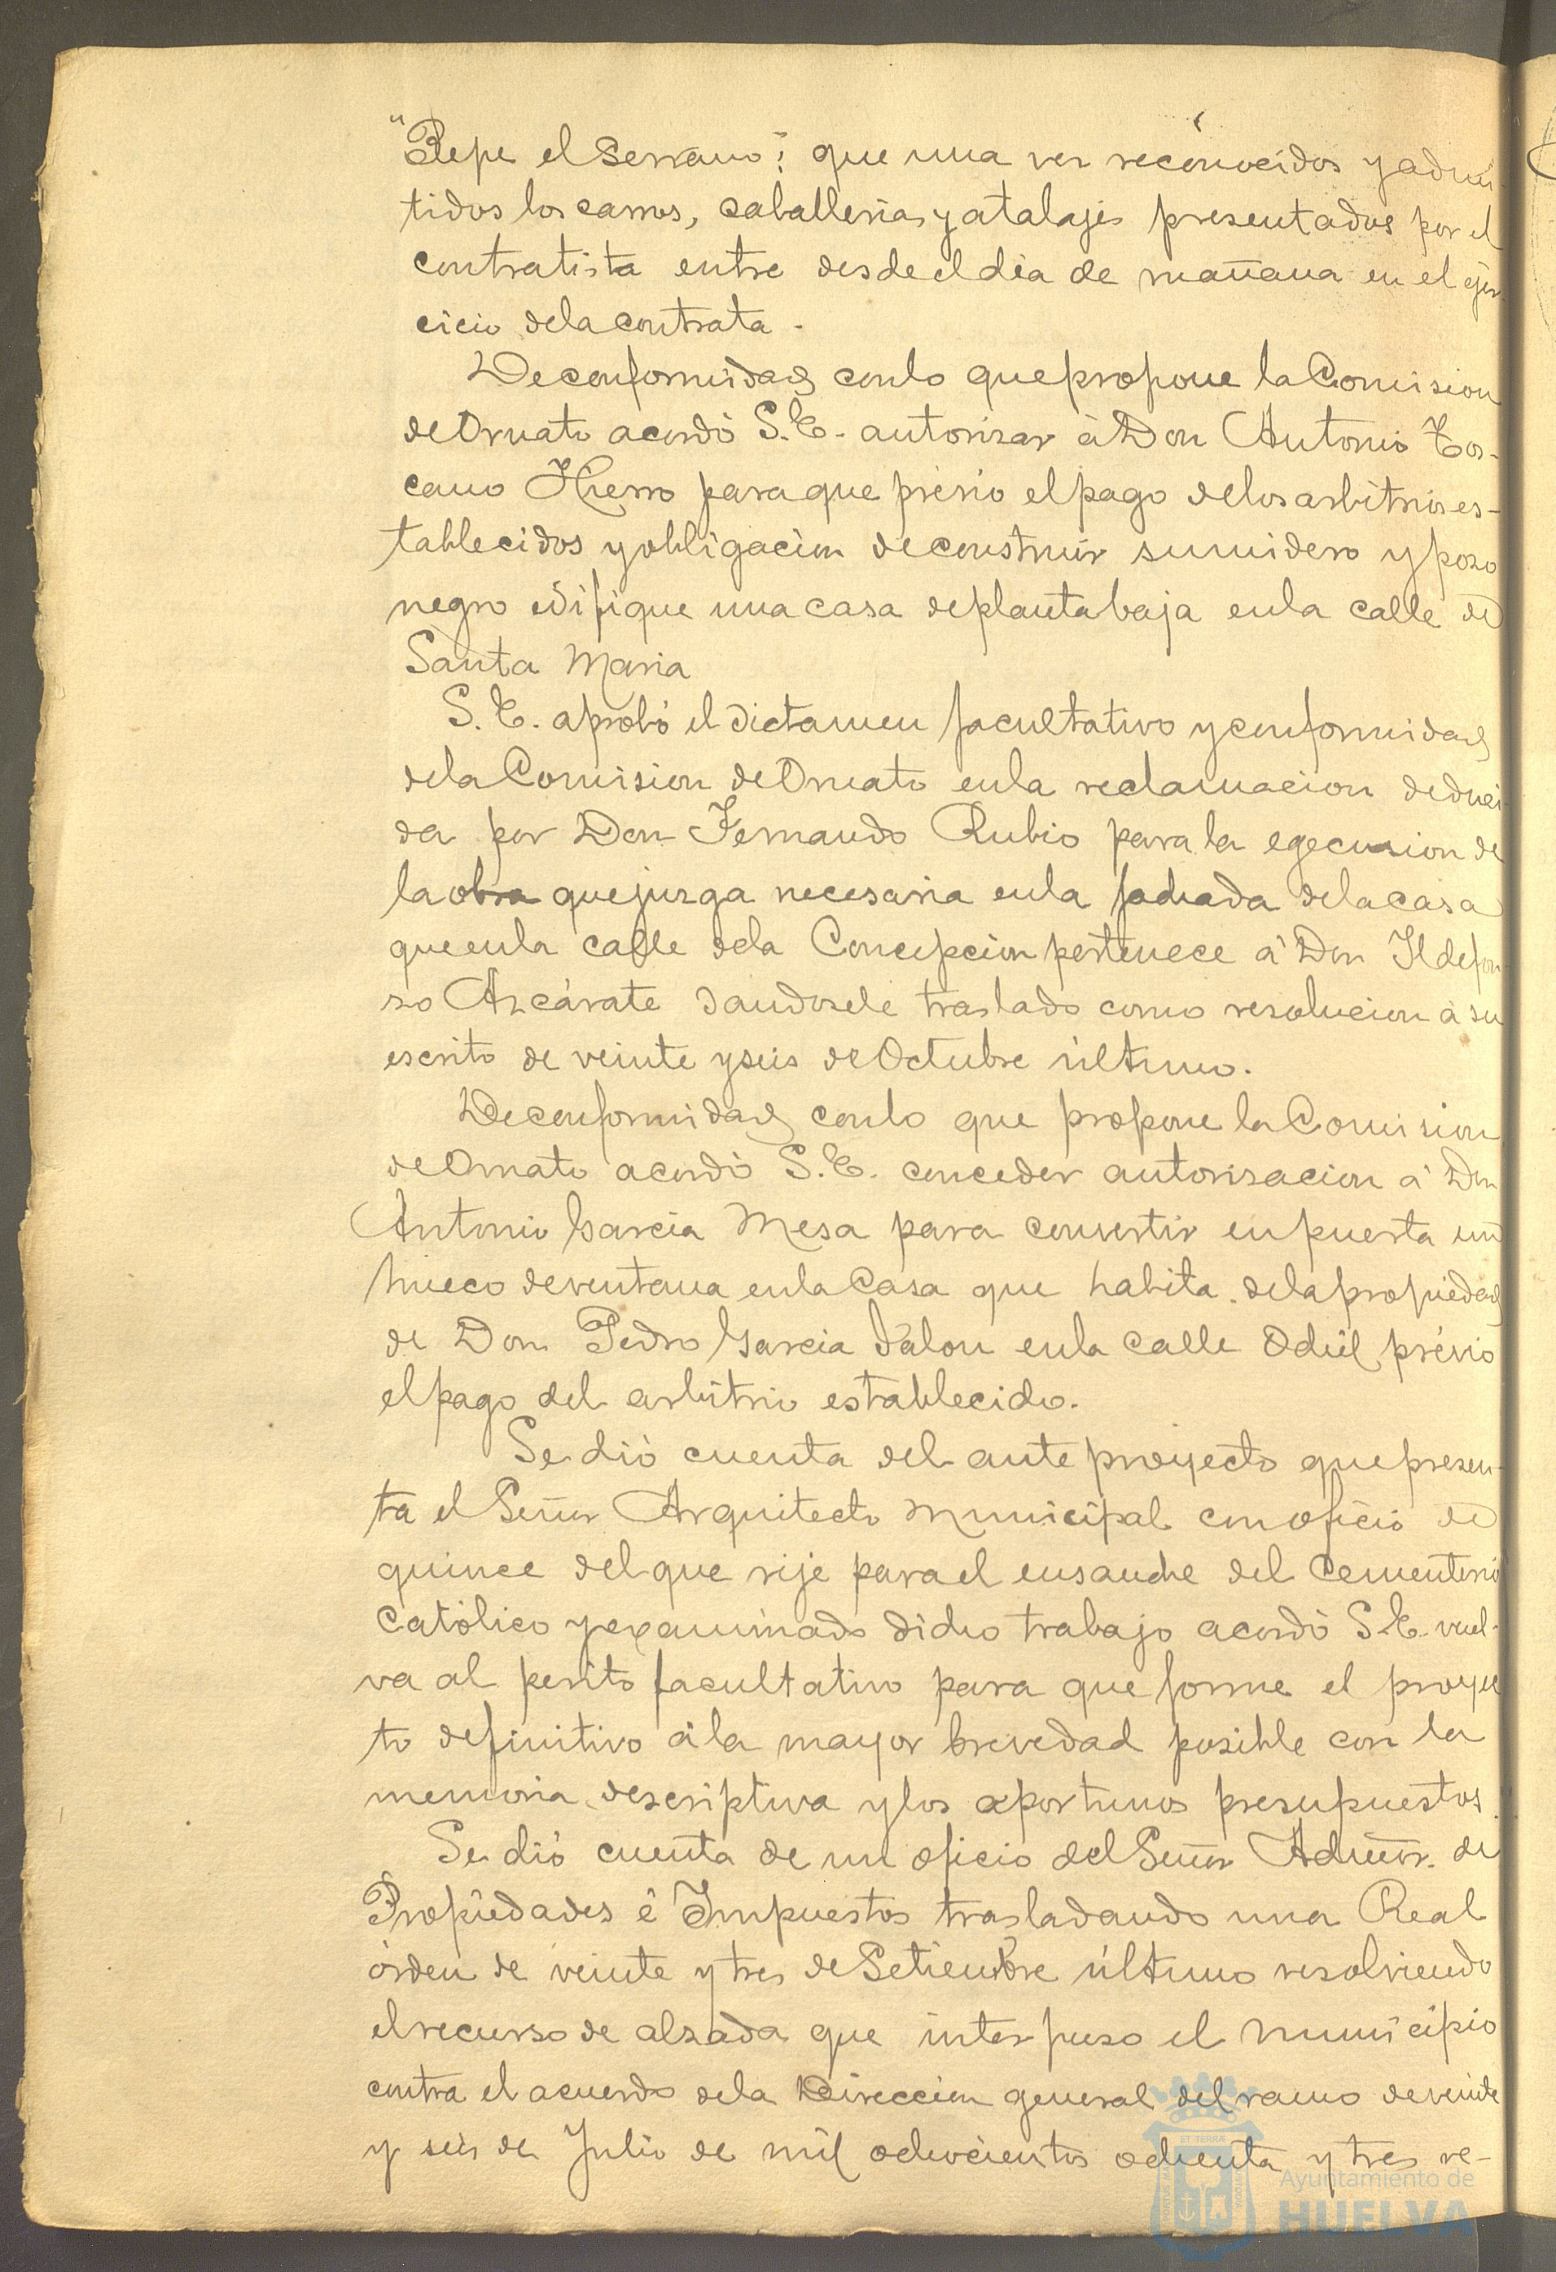 "Pepe el Serrano"; que una vez reconocidos y admi-
tidos los carros, caballerias y atalajes presentados por el
contratista entre desde el dia de mañana en el ejer-
cicio de la contrata.
De conformidad con lo que propone la Comision
de Ornato acordó S. E. autorizar á Don Antonio Tos-
cano Hierro para que prévio el pago de los arbitrios es-
tablecidos y obligacion de construir sumidero y pozo
negro edifique una casa de planta baja en la calle de
Santa Maria
S. E. aprobó el dictamen facultativo y conformidad
de la Comision de Ornato en la reclamacion deduci
da por Don Fernando Rubio para la egecucion de
la obra que juzga necesaria en la fachada de la casa
que en la calle de la Concepcion pertenece á Don Ildefon
so Azcárate dandosele traslado como resolucion á su
escrito de veinte y seis de Octubre último.
De conformidad con lo que propone la Comision
de Ornato acordó S. E. conceder autorizacion á Don
Antonio Garcia Mesa para convertir en puerta un
hueco de ventana en la Casa que habita de la propiedad
de Don Pedro Garcia Jalon en la calle Odiel prévio
el pago del arbitrio establecido.
Se dió cuenta del ante proyecto que presen-
ta el Señor Arquitecto Municipal con oficio de
quince del que rije para el ensanche del Cementerio
Católico y examinado dicho trabajo acordó S. E. vuel-
va al perito facultativo para que forme el proyec
to definitivo á la mayor brevedad posible con la
memoria descriptiva y los oportunos presupuestos.
Se dió cuenta de un oficio del Señor Admor. de
Propiedades é Impuestos trasladando una Real
órden de veinte y tres de Setiembre último resolviendo
el recurso de alzada que interpuso el Municipio
contra el acuerdo de la Direccion general del ramo de veinte
y seis de Julio de mil ochocientos ochenta y tres re-
Ayuntamiento de
HUELVA